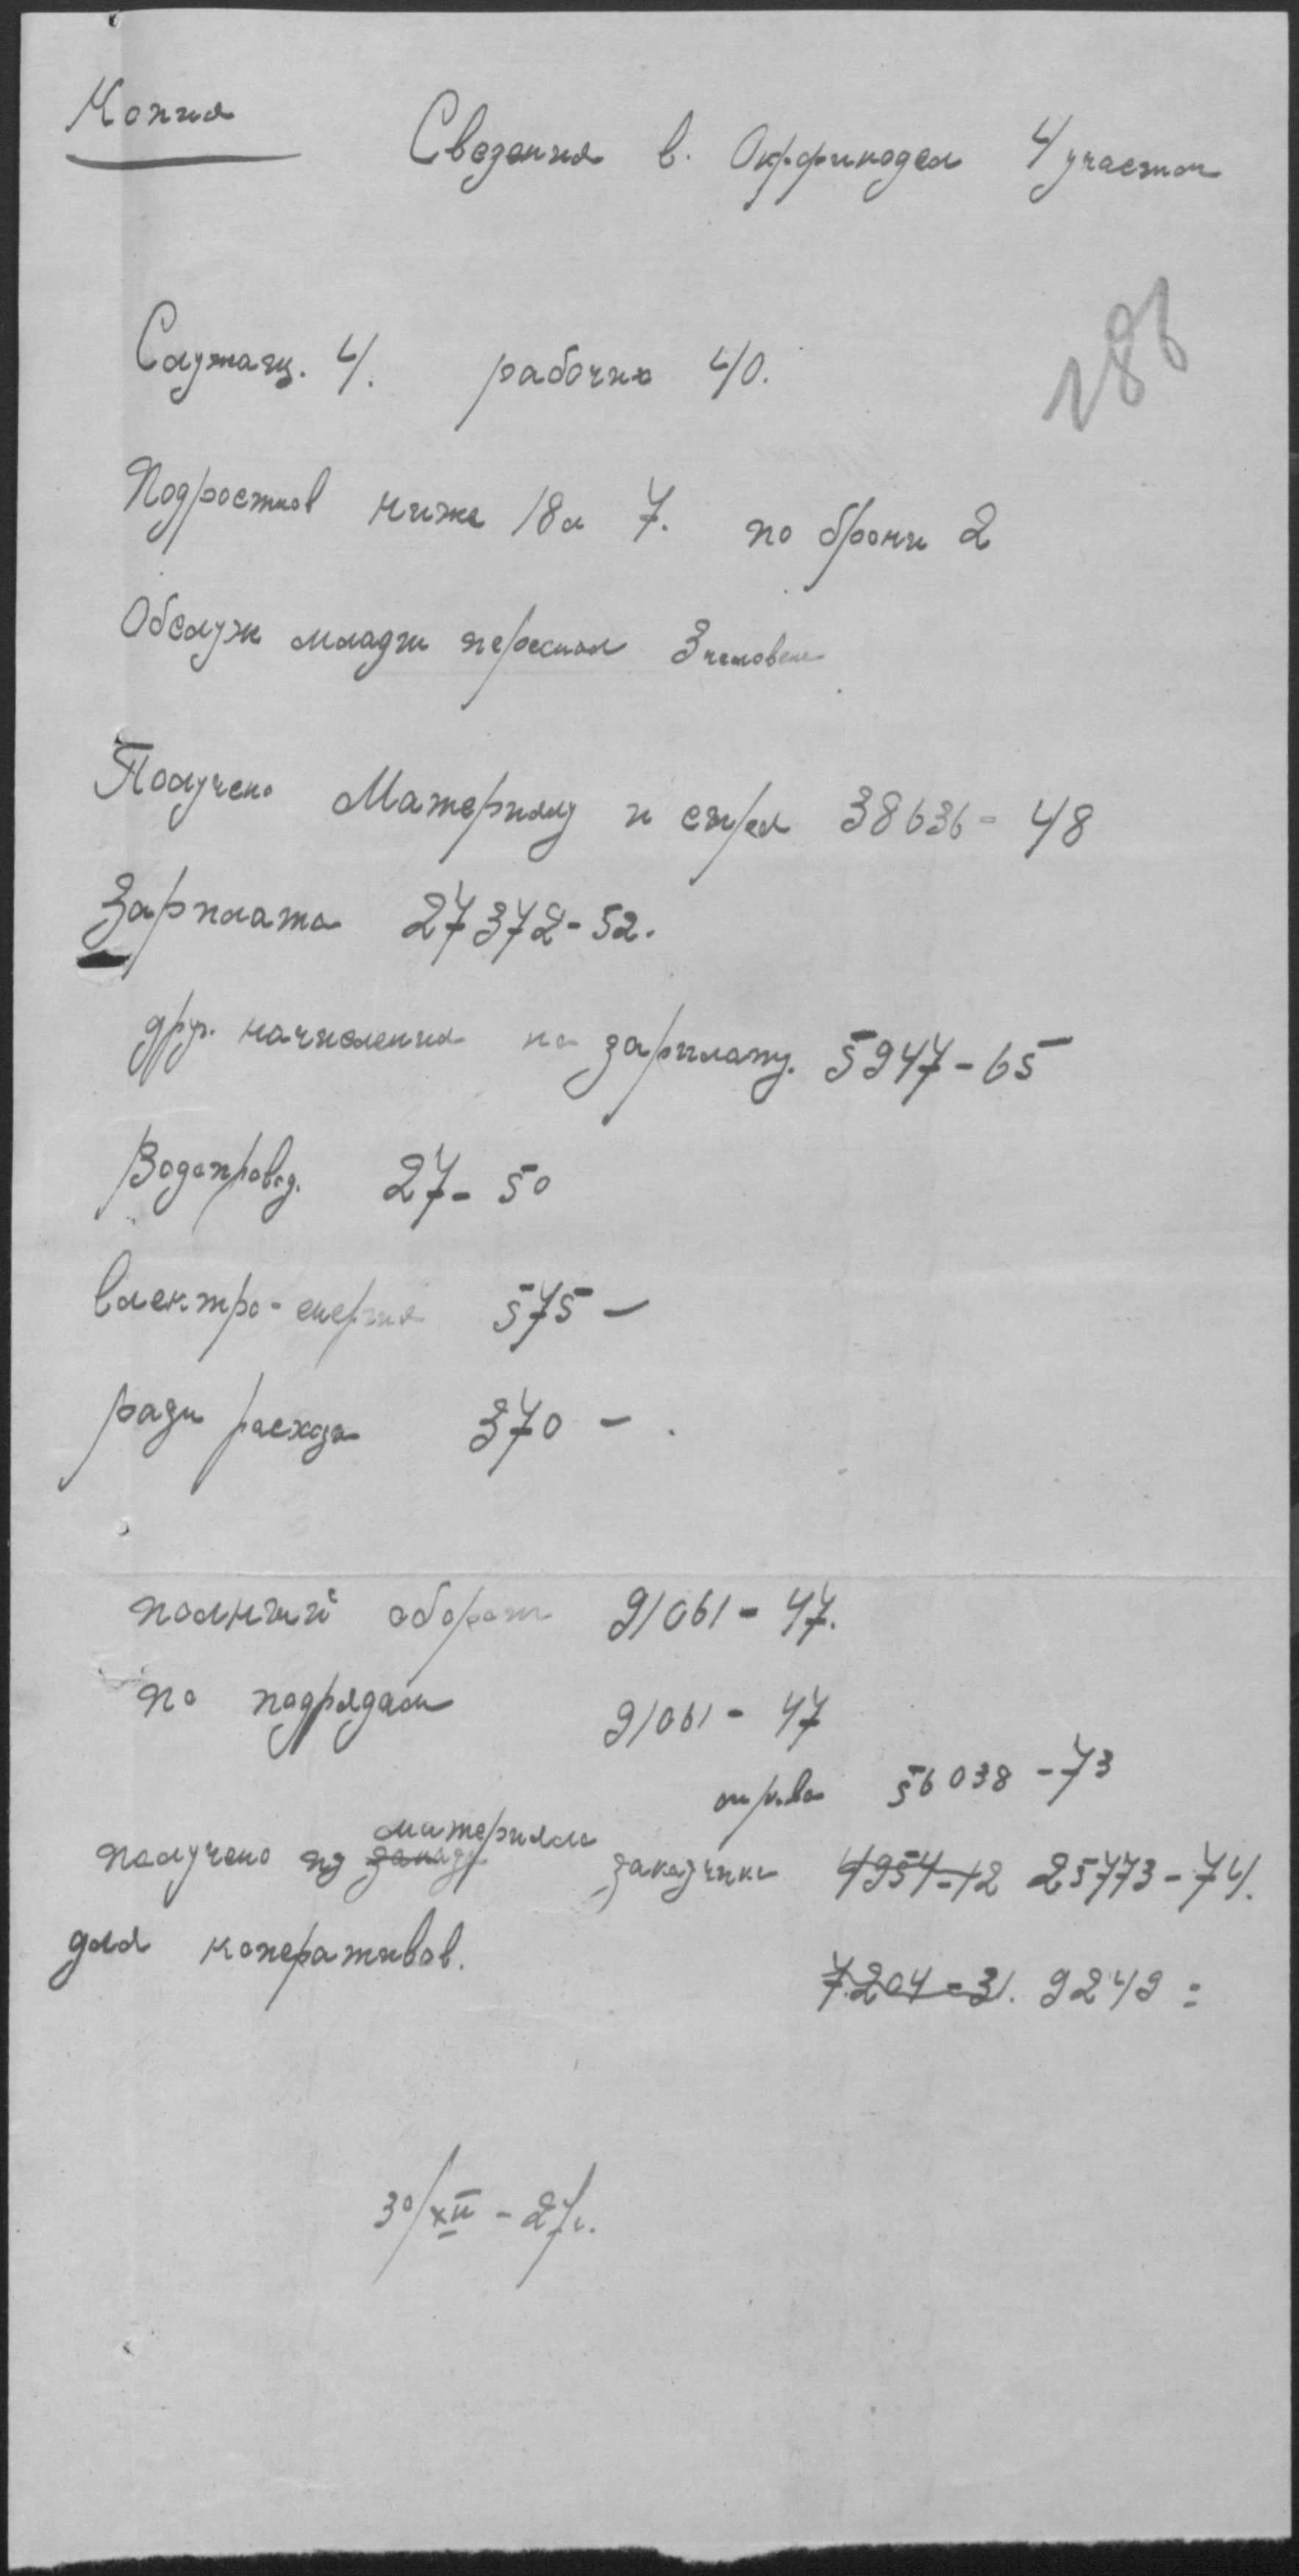 Копия
Сведения в. Окрфинодел 4 участок
186
Служащ. 4. рабочих 40.
Подростков ниже 18 л 7. по брони 2
Обслуж младш персонал 3 человек
Получено Материалу и 38636 - 48
Зарплата 27372 - 52.
друг. начисления на зарплату. 5947 - 65
Водопровод. 27 - 50
Електро-енергия 575 -
разн расхода 370 - .
полный оборот 91061 - 47.
по подрядам 91061 - 47
56038 - 73
материала
получено из заказчика 4954-12 25773 - 74.
для коперативов. 7204 - 31. 9249 =
30/XII - 27 г.